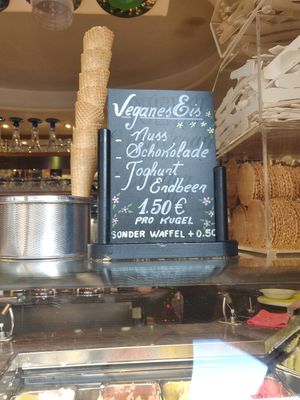 Veganes Eis
- Nuss
- Schokolade
- Joghurt
Erdbeer
1.50 €
PRO KUGEL
SONDER WAFFEL + 0.50